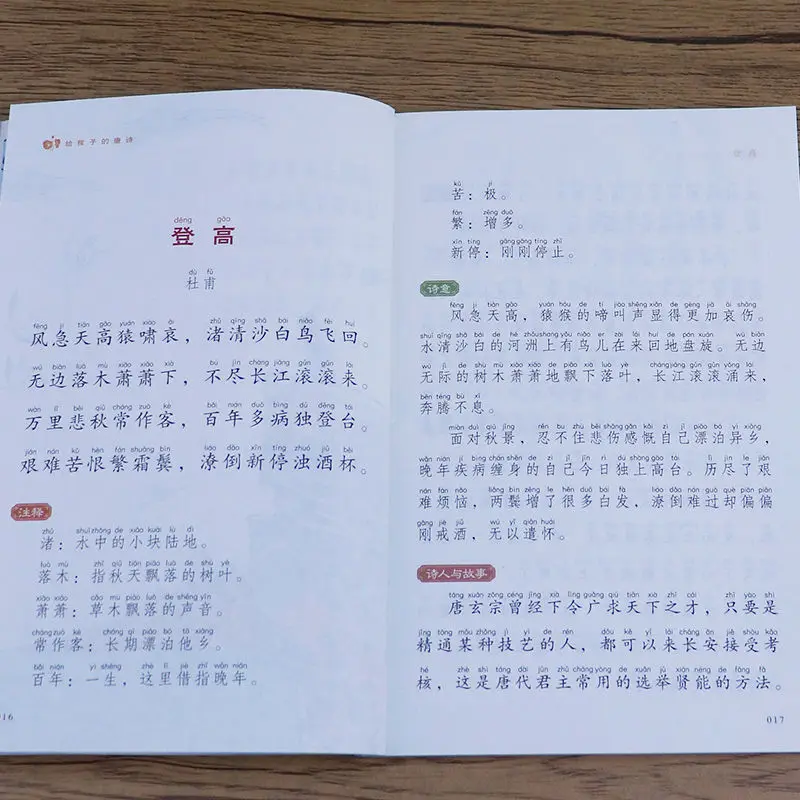 给孩子的唐诗
dēng gāo
登高
dù fǔ
杜甫
fēng jí tiān gāo yuán xiào āi zhǔ qīng shā bái niǎo fēi huí
风急天高猿啸哀，渚清沙白鸟飞回。
wú biān luò mù xiāo xiāo xià bù jìn cháng jiāng gǔn gǔn lái
无边落木萧萧下，不尽长江滚滚来。
wàn lǐ bēi qiū cháng zuò kè bǎi nián duō bìng dú dēng tái
万里悲秋常作客，百年多病独登台。
jiān nán kǔ hèn fán shuāng bìn liáo dǎo xīn tíng zhuó jiǔ bēi
艰难苦恨繁霜鬓，潦倒新停浊酒杯。
注释
zhǔ shuǐ zhōng de xiǎo kuài lù dì
渚：水中的小块陆地。
luò mù zhǐ qiū tiān piāo luò de shù yè
落木：指秋天飘落的树叶。
xiāo xiāo cǎo mù piāo luò de shēng yīn
萧萧：草木飘落的声音。
cháng zuò kè cháng qī piāo bó tā xiāng
常作客：长期漂泊他乡。
bǎi nián yì shēng zhè lǐ jiè zhǐ wǎn nián
百年：一生，这里借指晚年。
016
登高
kǔ jí
苦：极。
fán zēng duō
繁：增多。
xīn tíng gāng gāng tíng zhǐ
新停：刚刚停止。
诗意
fēng jí tiān gāo yuán hóu de tí jiào shēng xiǎn de gèng jiā āi shāng
风急天高，猿猴的啼叫声显得更加哀伤。
shuǐ qīng shā bái de hé zhōu shang yǒu niǎo er zài lái huí de pán xuán wú biān
水清沙白的河洲上有鸟儿在来回地盘旋。无边
wú jì de shù mù xiāo xiāo de piāo xià luò yè cháng jiāng gǔn gǔn yǒng lái
无际的树木萧萧地飘下落叶，长江滚滚涌来，
bēn téng bù xī
奔腾不息。
miàn duì qiū jǐng rěn bú zhù bēi shāng gǎn kǎi zì jǐ piāo bó yì xiāng
面对秋景，忍不住悲伤感慨自己漂泊异乡，
wǎn nián jí bìng chán shēn de zì jǐ jīn rì dú shàng gāo tái lì jìn le jiān
晚年疾病缠身的自己今日独上高台。历尽了艰
nán fán nǎo liǎng bìn zēng le hěn duō bái fà liáo dǎo nán guò què piān piān
难烦恼，两鬓增了很多白发，潦倒难过却偏偏
gāng jiè jiǔ wú yǐ qiǎn huái
刚戒酒，无以遣怀。
诗人与故事
táng xuán zōng céng jīng xià lìng guǎng qiú tiān xià zhī cái zhǐ yào shì
唐玄宗曾经下令广求天下之才，只要是
jīng tōng mǒu zhǒng jì yì de rén dōu kě yǐ lái cháng ān jiē shòu kǎo
精通某种技艺的人，都可以来长安接受考
hé zhè shì táng dài jūn zhǔ cháng yòng de xuǎn jǔ xián néng de fāng fǎ
核，这是唐代君主常用的选举贤能的方法。
017